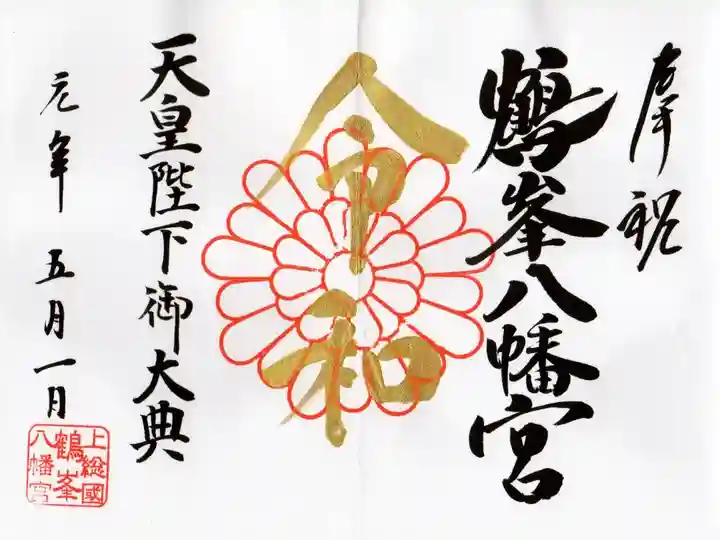 奉祝
鶴峯八幡宮
令和
天皇陛下御大典
元年 五月一日
上総國
鶴峯
八幡宮